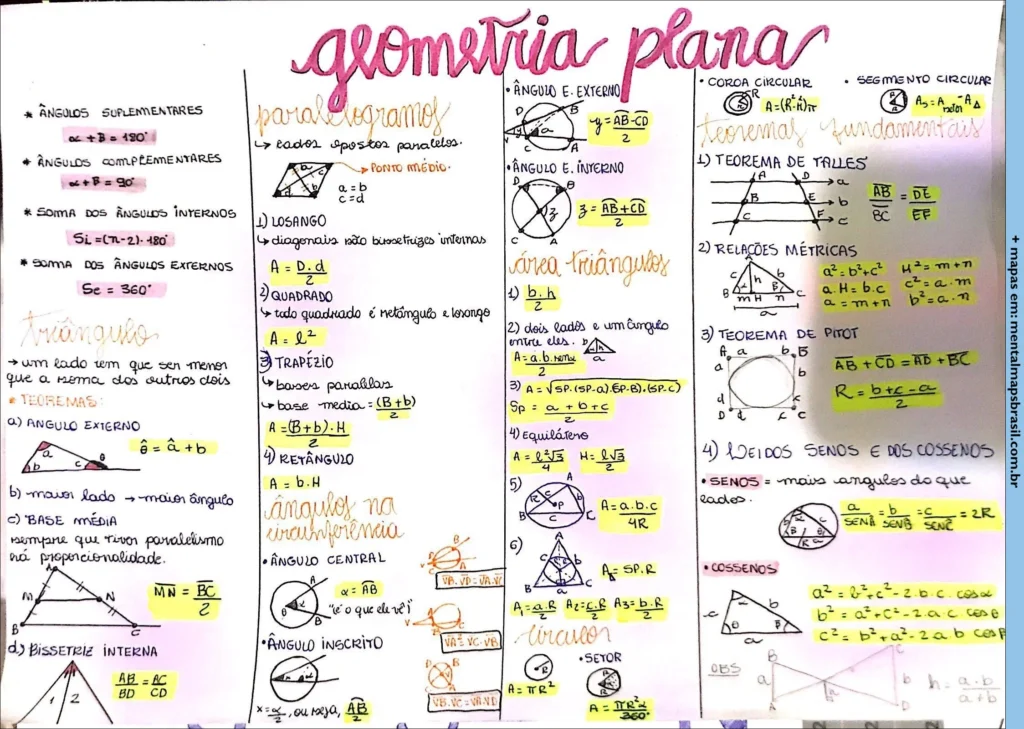 geometria plana
* ÂNGULOS SUPLEMENTARES
α + B = 180°
* ÂNGULOS COMPLEMENTARES
α + B = 90°
* SOMA DOS ÂNGULOS INTERNOS
Si = (n-2).180°
* SOMA DOS ÂNGULOS EXTERNOS
Se = 360°
triângulo
→ um lado tem que ser menor
que a soma dos outros dois
• TEOREMAS:
a) ANGULO EXTERNO
a
b
c
θ
θ̂ = â + b
b) maior lado → maior ângulo
c) BASE MÉDIA
sempre que tiver paralelismo
há proporcionalidade.
A
M
N
B
C
MN = BC/2
d) BISSETRIZ INTERNA
1
2
AB/BD = AC/CD
paralelogramos
↳ lados opostos paralelos.
→ PONTO MÉDIO.
a = b
c = d
1) LOSANGO
↳ diagonais são bissetrizes internas
A = D.d/2
2) QUADRADO
↳ todo quadrado é retângulo e losango
A = l²
3) TRAPÉZIO
↳ bases paralelas
↳ base media = (B+b)/2
A = (B+b).H/2
4) RETÂNGULO
A = b.H
ângulos na
circunferência
• ÂNGULO CENTRAL
A
B
P
α
α = AB
"é o que ele vê"
VB.VD = VA.V
• ÂNGULO INSCRITO
VA² = VC.VB
x = α/2, ou seja, AB/2
VB.VC = VA.VD
• ÂNGULO E. EXTERNO
y = AB-CD/2
• ÂNGULO E. INTERNO
D
B
C
A
z
z = AB+CD/2
área triângulos
1) b.h/2
2) dois lados e um ângulo
entre eles.
A = a.b.senα/2
3) A = √SP.(SP-a).(SP-B).(SP-C)
Sp = a+b+c/2
4) equilátero
A = l²√3/4 H = l√3/2
5)
A = a.b.c/4R
6)
A△ = SP.R
A1 = a.R/2 A2 = c.R/2 A3 = b.R/2
círculos
R
A = πR²
• SETOR
A = πR²α/360°
• COROA CIRCULAR
A = (R²-r²)π
• SEGMENTO CIRCULAR
teoremas fundamentais
1) TEOREMA DE TALLES
A D a
B E b
C F c
AB/BC = DE/EF
2) RELAÇÕES MÉTRICAS
A
c h b
B m H n C
a
a² = b²+c² H² = m+n
a.H = b.c c² = a.m
a = m+n b² = a.n
3) TEOREMA DE PITOT
AB + CD = AD + BC
R = b+c-a/2
4) LEI DOS SENOS E DOS COSSENOS
• SENOS = mais angulos do que
lados.
a/SENA = b/SENB = c/SENC = 2R
• COSSENOS
a² = b²+c²-2.b.c.cosα
b² = a²+c²-2.a.c cosθ
c² = b²+a²-2ab cosβ
OBS
B
C
a
h
b
A
D
h = a.b/a+b
+ mapas em: mentalmapsbrasil.com.br